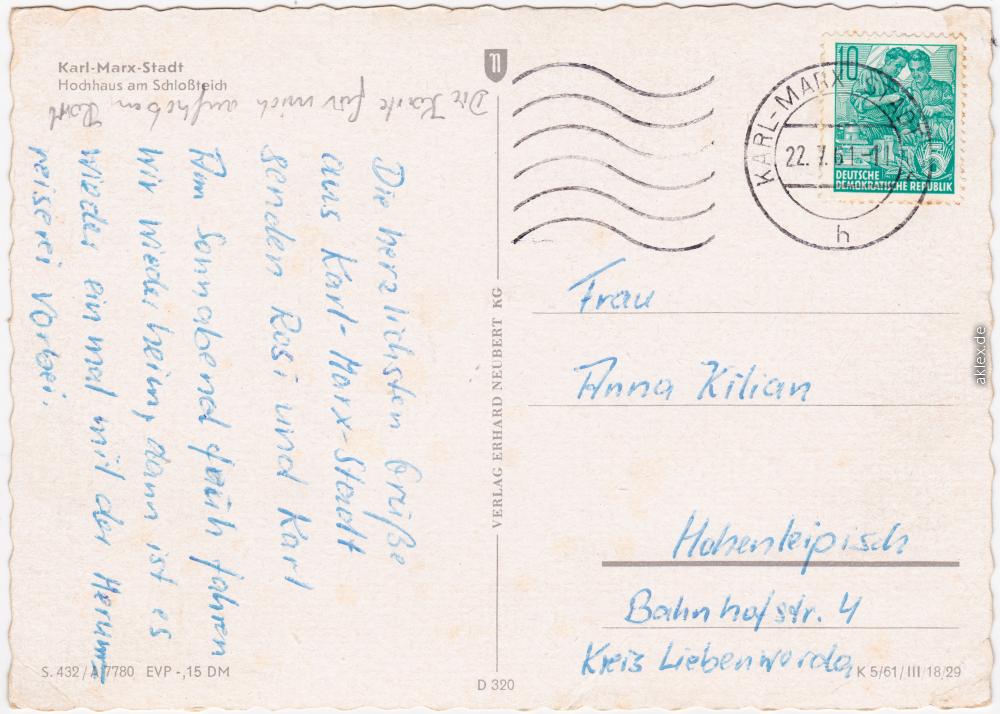 Karl-Marx-Stadt
Hochhaus am Schloßteich
Die Karte für mich aufheben Karl
Die herzlichsten Grüße
aus Karl-Marx-Stadt
senden Rosi und Karl
Am Sonnabend früh fahren
wir wieder heim, dann ist es
wieder einmal mit der Herum-
reiserei vorbei.
S. 432/A 7780 EVP -,15 DM
VERLAG ERHARD NEUBERT KG
D 320
KARL-MARX-STADT
22. 7. 61-11
h
10
5
DEUTSCHE
DEMOKRATISCHE REPUBLIK
Frau
Anna Kilian
Hohenleipisch
Bahnhofstr. 4
Kreis Liebenwerda
K 5/61/III/18/29
aklex.de